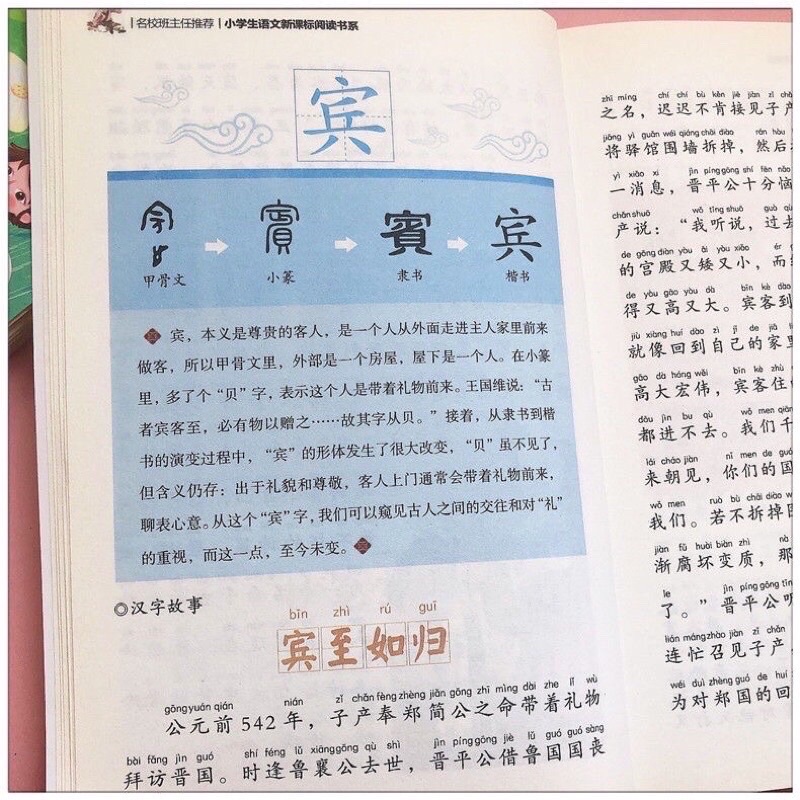 名校班主任推荐 | 小学生语文新课标阅读书系
宾
甲骨文
小篆
賓
隶书
宾
楷书
宾，本义是尊贵的客人，是一个人从外面走进主人家里前来
做客，所以甲骨文里，外部是一个房屋，屋下是一个人。在小篆
里，多了个“贝”字，表示这个人是带着礼物前来。王国维说：“古
者宾客至，必有物以赠之……故其字从贝。”接着，从隶书到楷
书的演变过程中，“宾”的形体发生了很大改变，“贝”虽不见了，
但含义仍存：出于礼貌和尊敬，客人上门通常会带着礼物前来，
聊表心意。从这个“宾”字，我们可以窥见古人之间的交往和对“礼”
的重视，而这一点，至今未变。
◎汉字故事
bīn zhì rú guī
宾至如归
gōng yuán qián nián zǐ chǎn fèng zhèng jiǎn gōng zhī mìng dài zhe lǐ wù
公元前542年，子产奉郑简公之命带着礼物
bài fǎng jìn guó shí féng lǔ xiāng gōng qù shì jìn píng gōng jiè lǔ guó guó sāng
拜访晋国。时逢鲁襄公去世，晋平公借鲁国国丧
zhī míng chí chí bù kěn jiē jiàn zǐ chǎn
之名，迟迟不肯接见子产
jiāng yì guǎn wéi qiáng chāi diào rán hòu
将驿馆围墙拆掉，然后
yì xiāo xi jìn píng gōng shí fēn nǎo
一消息，晋平公十分恼
chǎn shuō wǒ tīng shuō guò qù
产说：“我听说，过去
de gōng diàn yòu ǎi yòu xiǎo ér
的宫殿又矮又小，而
dé yòu gāo yòu dà bīn kè dào
得又高又大。宾客到
jiù xiàng huí dào zì jǐ de jiā lǐ
就像回到自己的家里
gāo dà hóng wěi bīn kè zhù
高大宏伟，宾客住
dōu jìn bu qù wǒ men qiān
都进不去。我们千
lái cháo jiàn nǐ men de guó
来朝见，你们的国
wǒ men ruò bù chāi diào wéi
我们。若不拆掉围
jiàn fǔ huài biàn zhì nà
渐腐坏变质，那
le jìn píng gōng tīng
了。”晋平公听
lián máng zhào jiàn zǐ chǎn
连忙召见子产，
wèi duì zhèng guó de huí
为对郑国的回